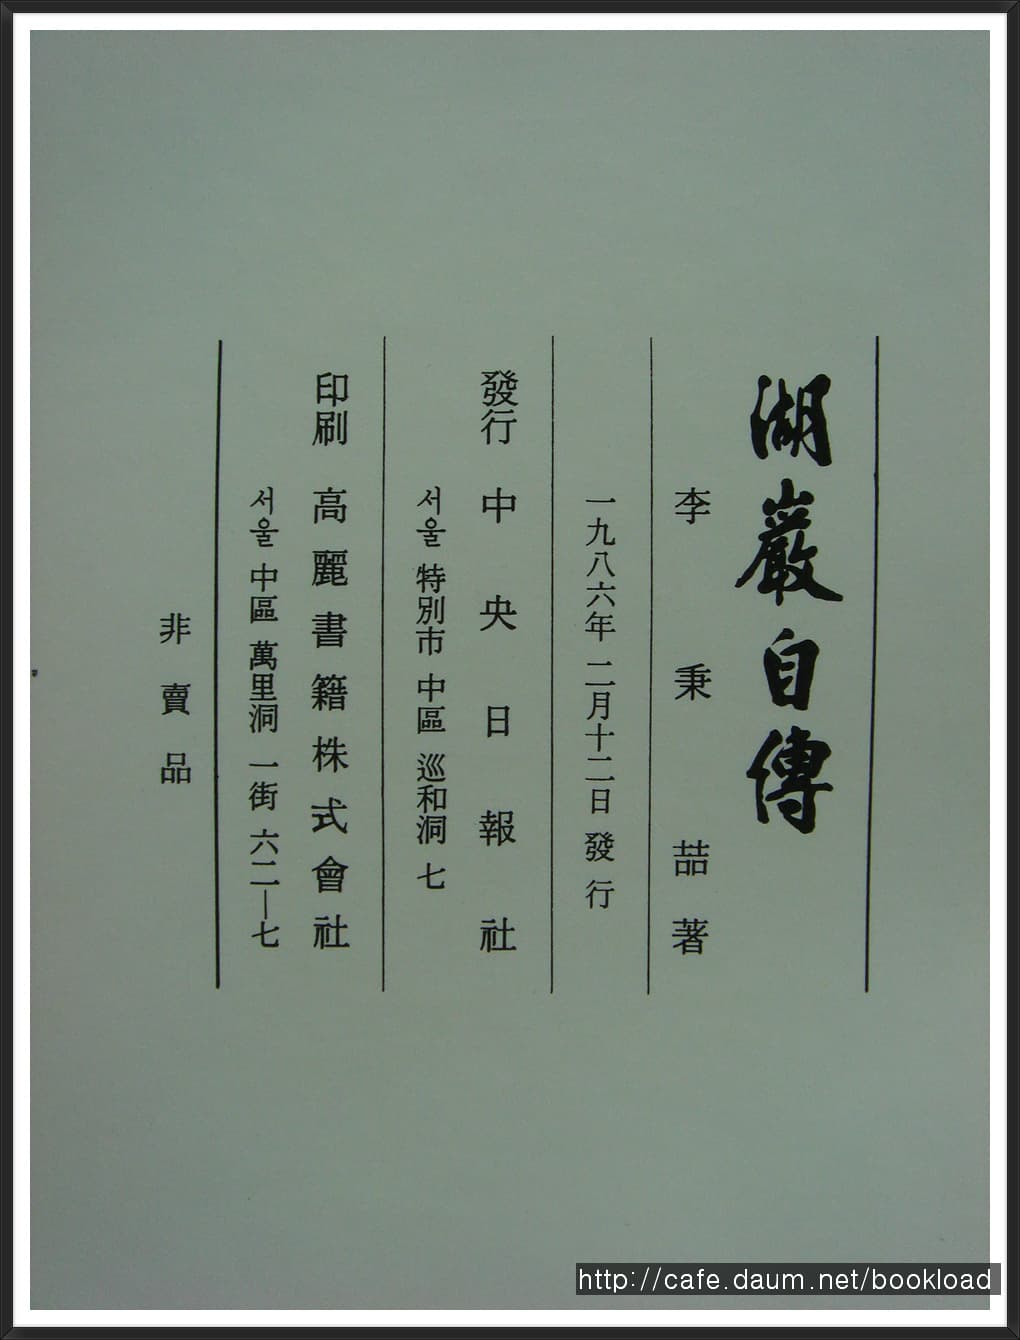 湖巖自傳
李秉喆著
一九八六年 二月十二日 發行
發行 中央日報社
서울 特別市 中區 巡和洞 七
印刷 高麗書籍株式會社
서울 中區 萬里洞 一街 六二—七
非賣品
http://cafe.daum.net/bookload